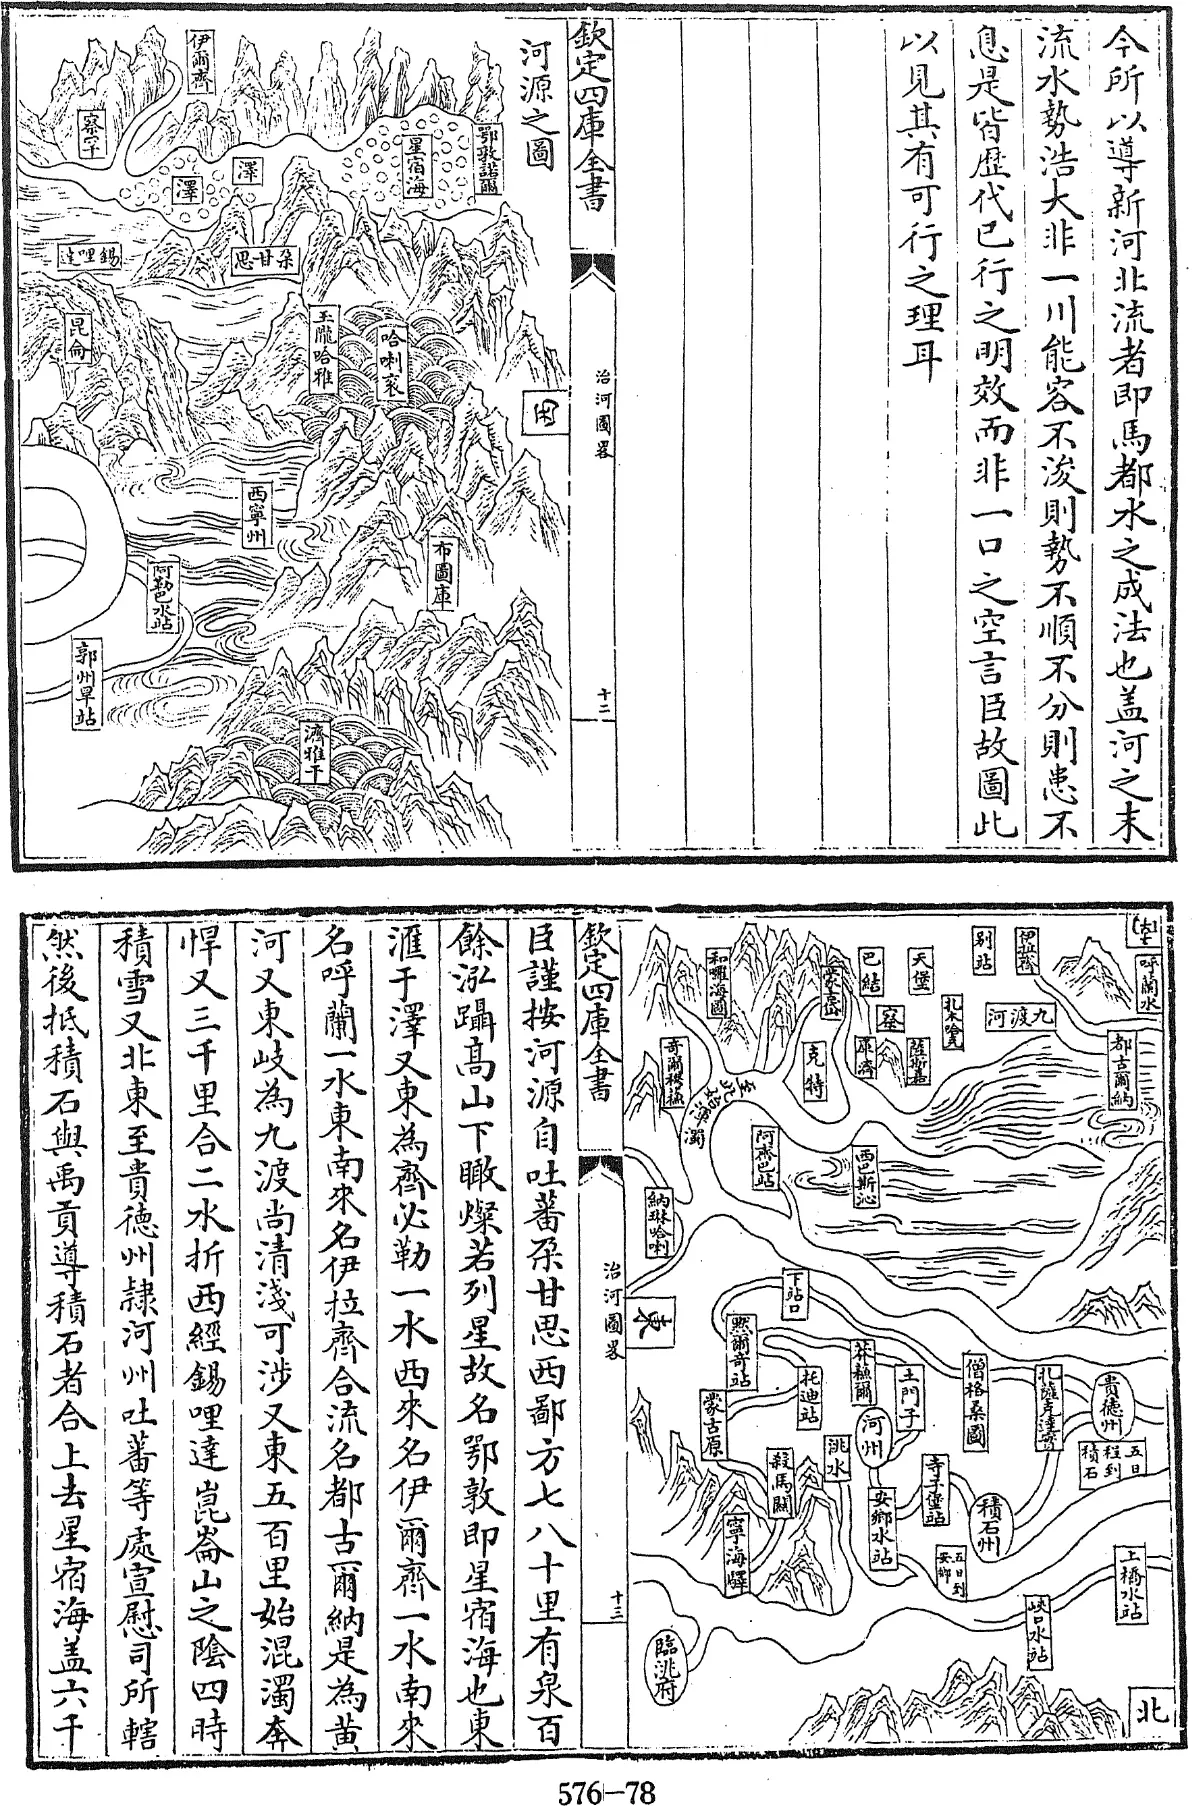 今所以導新河北流者即馬都水之成法也蓋河之末
流水勢浩大非一川能容不浚則勢不順不分則患不
息是皆歴代已行之明效而非一口之空言臣故圖此
以見其有可行之理耳
欽定四庫全書
治河圖畧
十二
河源之圖
鄂敦諾爾
星宿海
伊爾齊
澤
澤
察罕
朶甘思
錫哩達
哈喇衮
玉隴哈雅
昆侖
西
西寧州
布圖庫
阿勒巴水站
郭州旱站
濟雅干
呼蘭水
伊拉齊
別站
天堡
巴結
九渡河
都古爾納
蒙岱
和囉海圖
薩斯嘉
克特
奇爾穆蘇
至此始渾濁
阿齊巴站
西巴斯沁
納琳哈喇
東
下站口
默爾奇站
莽蘇爾
土門子
僧格桑圖
貴德州
托迪站
蒙古原
河州
洮水
五日程到積石
殺馬關
寺子堡站
安鄉水站
積石州
寧海驛
五日到安鄉
上橋水站
峽口水站
臨洮府
北
欽定四庫全書
治河圖畧
十三
臣謹按河源自吐蕃朶甘思西鄙方七八十里有泉百
餘泓躡高山下瞰燦若列星故名鄂敦即星宿海也東
滙于澤又東為齊必勒一水西來名伊爾齊一水南來
名呼蘭一水東南來名伊拉齊合流名都古爾納是為黄
河又東岐為九渡尚清淺可涉又東五百里始混濁奔
悍又三千里合二水折西經錫哩達崑崙山之陰四時
積雪又北東至貴德州隷河州吐蕃等處宣慰司所轄
然後抵積石與禹貢導積石者合上去星宿海蓋六千
576-78